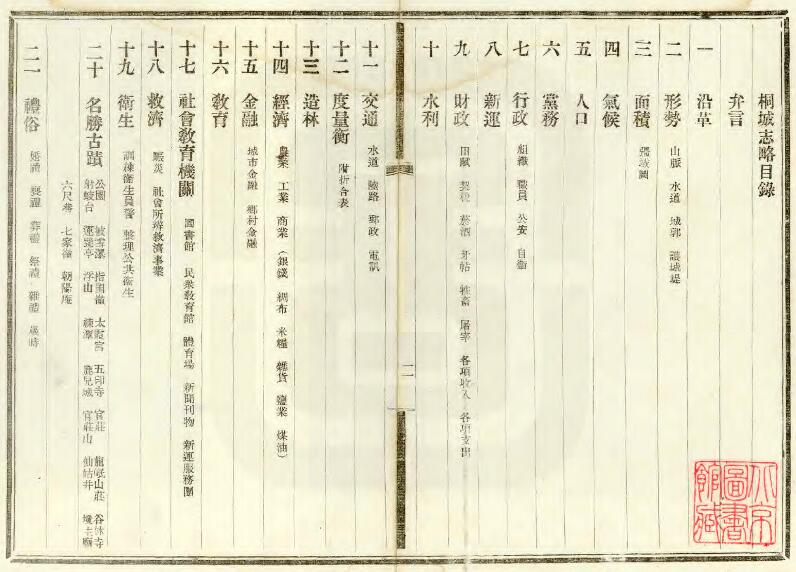 桐城志略目錄
弁言
一 沿革
二 形勢 山脈 水道 城郭 護城堤
三 面積 疆域圖
四 氣候
五 人口
六 黨務
七 行政 組織 職員 公安 自衛
八 新運
九 財政 田賦 契稅 菸酒 牙帖 牲畜 屠宰 各項收入 各項支出
十 水利
二
十一 交通 水道 陸路 郵政 電訊
十二 度量衡 附折合表
十三 造林
十四 經濟 農業 工業 商業(銀錢 綢布 米糧 雜貨 鹽業 煤油)
十五 金融 城市金融 鄉村金融
十六 教育
十七 社會教育機關 圖書館 民衆教育館 體育場 新聞刊物 新運服務團
十八 救濟 賑災 社會所辦救濟事業
十九 衛生 訓練衛生員警 整理公共衛生
二十 名勝古蹟 公園 披雪瀑 指南 太霞宮 五印寺 官莊 龍眠山莊 谷林寺
射蛟台 浮山 練潭 鹿兒城 官莊山 仙姑井 境主廟
六尺巷 七家 朝陽庵
二一 禮俗 婚禮 喪禮 葬禮 祭禮 雜禮 歲時
北京圖書館藏